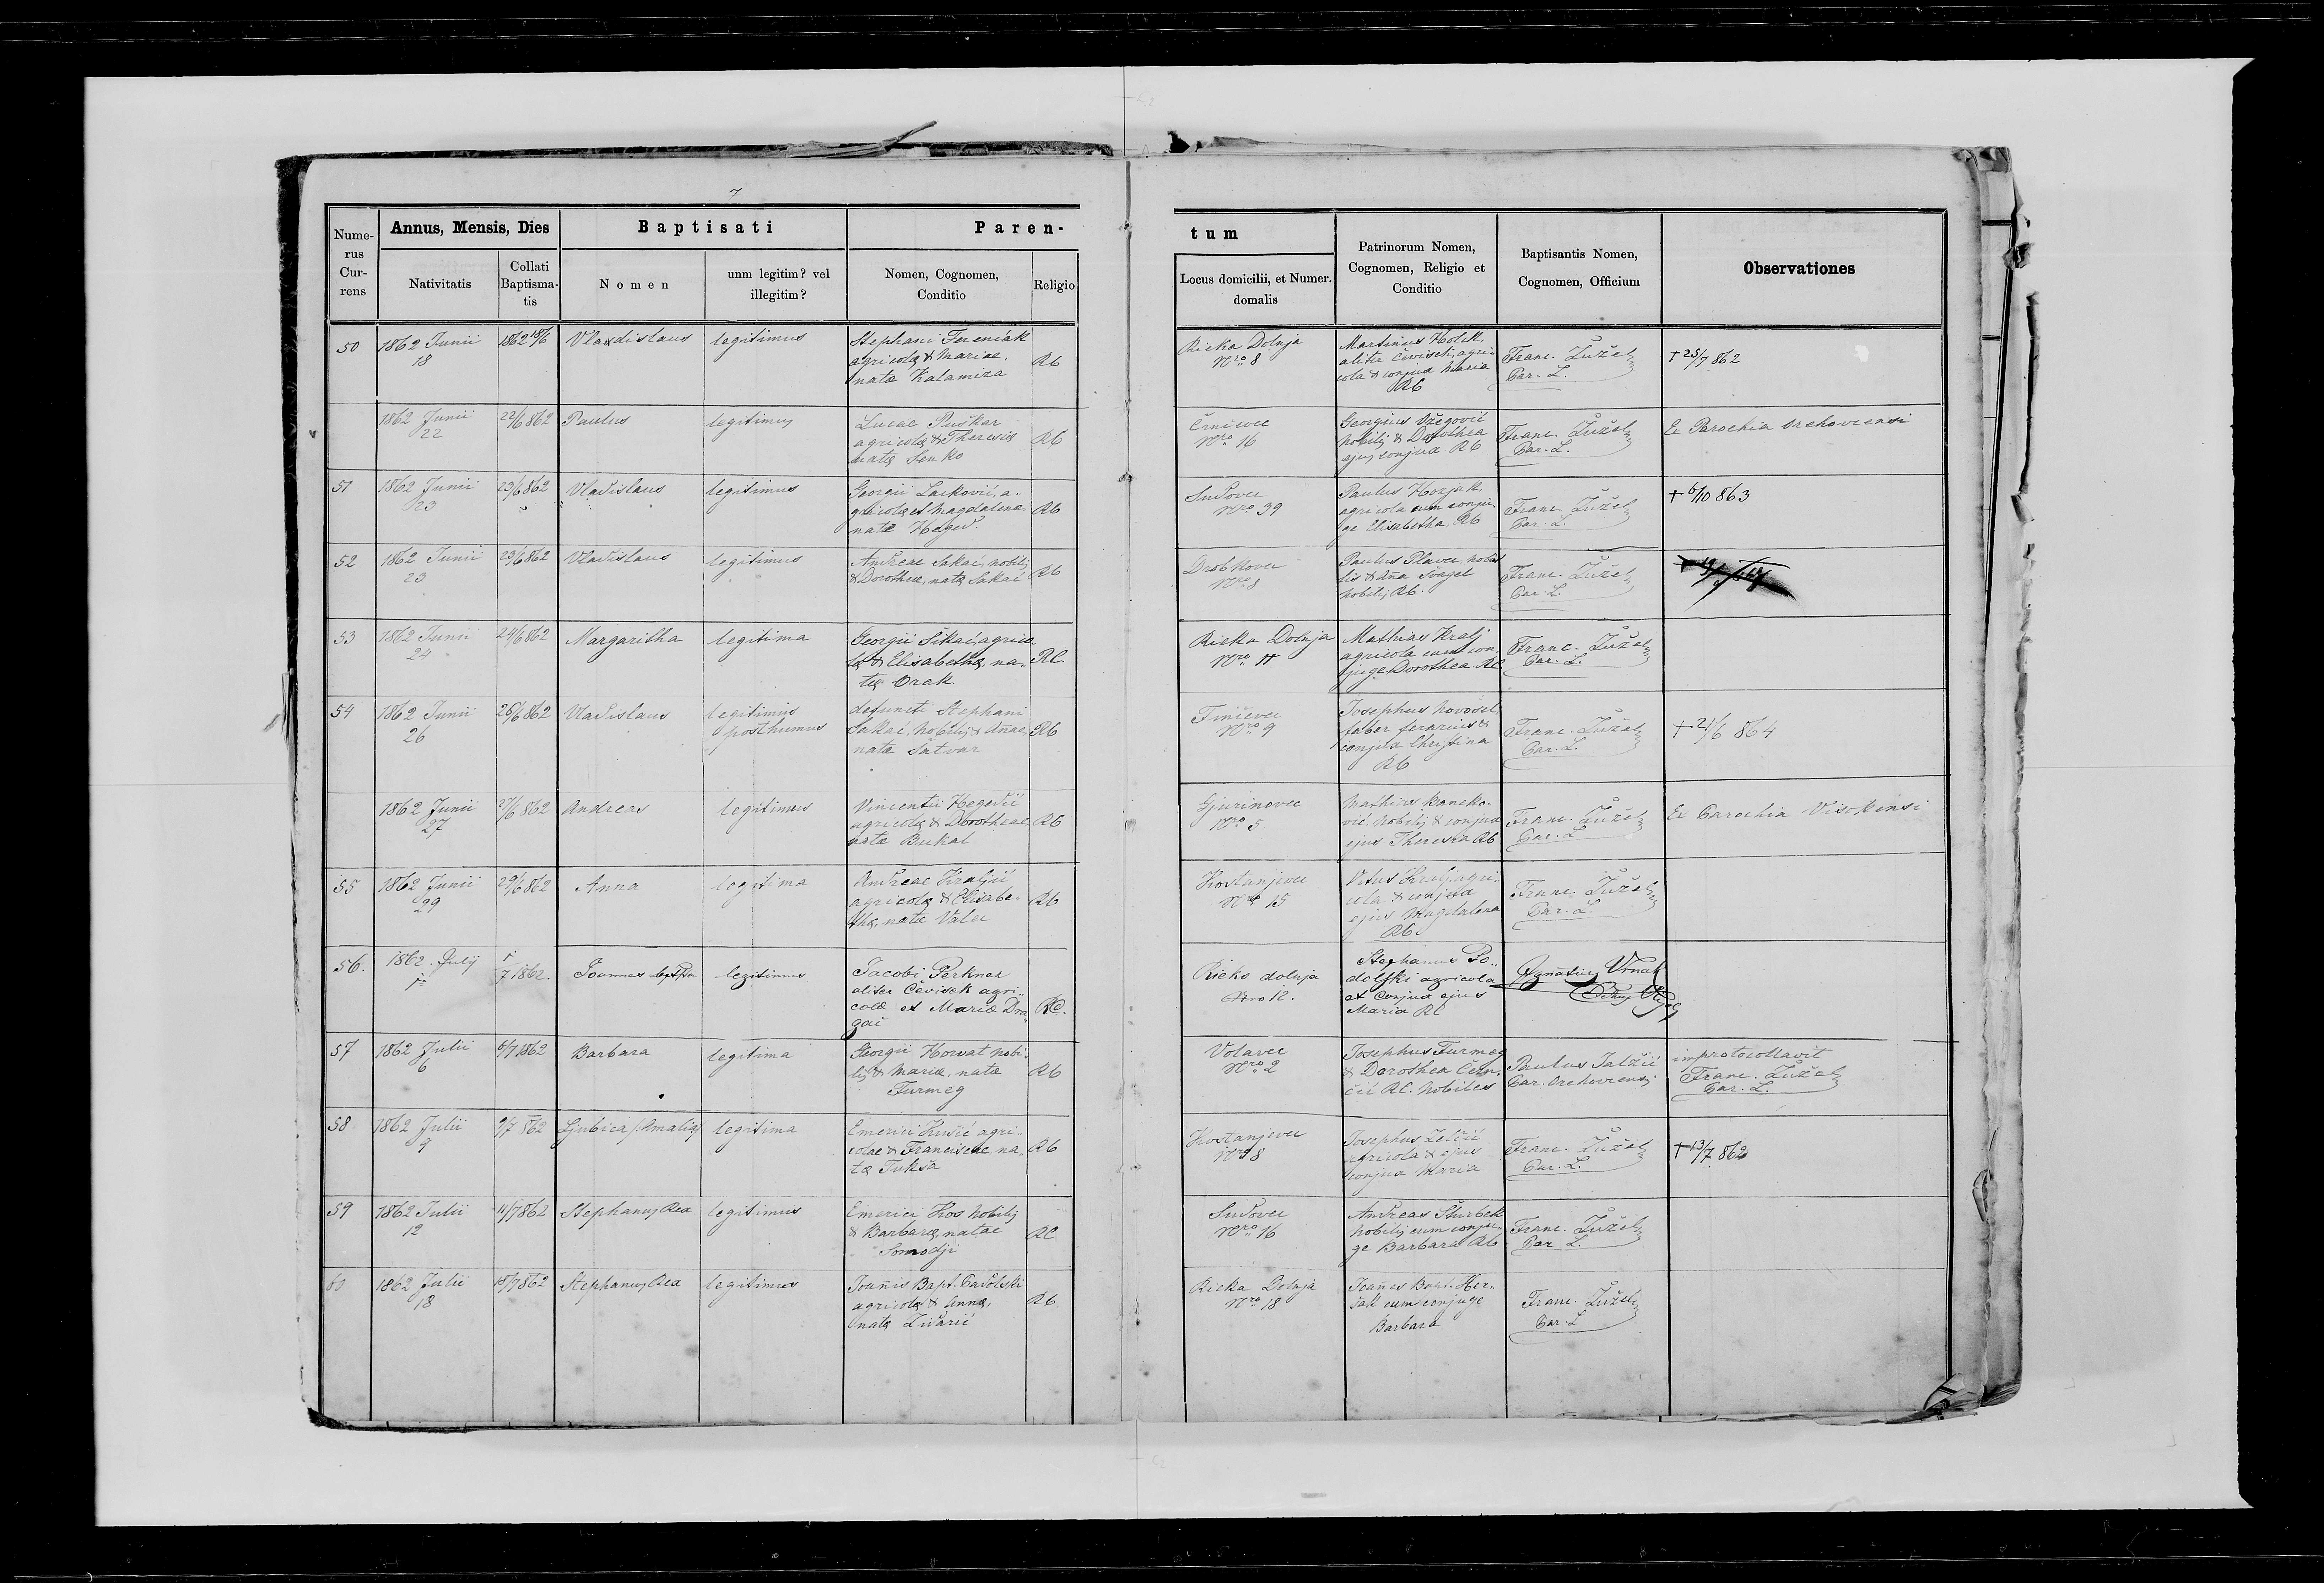 7
Nume-
rus
Cur-
rens
Annus, Mensis, Dies
Nativitatis
Collati
Baptisma-
tis
Baptisati
Nomen
unm legitim? vel
illegitim?
Paren-
Nomen, Cognomen,
Conditio
Religio
tum
Locus domicilii, et Numer.
domalis
Patrinorum Nomen,
Cognomen, Religio et
Conditio
Baptisantis Nomen,
Cognomen, Officium
Observationes
50
1862 Junii
18
1862 18/6
Vladislaus
legitimus
Stephani Ferenčak
agricolę & Mariae,
nata Kalamiza
RC
Rieka Dolnja
Nro 8
Martinus Kolek,
aliter Čevisek, agri-
cola & conjux Maria
RC
Franc. Žužel
Par. L.
+ 25/7 862
1862 Junii
22
22/6 862
Paulus
legitimus
Lucae Puškar
agricolę & Theresię
natę Senko
RC
Črnčevec
Nro 16
Georgius Ožegović
nobilis & Dorothea
ejus conjux RC
Franc. Žužel
Par. L.
Ex Parochia Orehovecensi
51
1862 Junii
23
23/6 862
Vladislaus
legitimus
Georgii Lacković, a-
gricolę et Magdalenę
natę
RC
Sudovec
Nro 39
Paulus Hozjak,
agricola cum conju-
ge Elisabetha, RC
Franc. Žužel
Par. L.
+ 6/10 863
52
1862 Junii
23
23/6 862
Vladislaus
legitimus
Andreae Sakač, nobilis
& Dorotheę, natę Sakač
RC
Drobkovec
Nro 8
Paulus Plavec nobi-
lis & Ana Svagel
nobilis RC.
Franc. Žužel
Par. L.
53
1862 Junii
24
24/6 862
Margaritha
legitima
Georgii Sikač, agrico-
lę & Elisabethę, na-
tę Orak
RC.
Rieka Dolnja
Nro 11
Mathias Kralj
agricola cum con-
juge Dorothea RC
Franc. Žužel
Par. L.
54
1862 Junii
26
26/6 862
Vladislaus
legitimus
posthumus
defuncti Stephani
Sakač, nobilis & Anae,
nata Satvar
RC
Finčevec
Nro 9
Josephus Novosel,
faber ferarius &
conjux Christina
RC
Franc. Žužel
Par. L.
+ 21/6 864
1862 Junii
27
27/6 862
Andreas
legitimus
Vincentii Hegedić
agricolę & Dorotheae
nata Bukal
RC
Gjurinovec
Nro 5
Mathias Braneko-
vić nobilis & conjux
ejus Theresia RC
Franc. Žužel
Par. L
Ex Parochia Visokensi
55
1862 Junii
29
29/6 862
Anna
legitima
Andreae Kraljić
agricolę & Elisabe-
thę, nata Valec
RC
Kostanjevec
Nro 15
Vitus Kralj agri-
cola & conjux
ejus Magdalena
RC
Franc. Žužel
Par. L.
56.
1862. July
1
1
7 1862.
Joannes Bapt
legitimus
Jacobi Perkner
aliter Čevisek agri-
colæ et Mariæ Dra-
gač
RC.
Rieka dolnja
Nro 12.
Stephanus Po-
dolski agricola
et Conjux ejus
Maria RC
Ignatius Vrnak
57
1862 Julii
6
6/7 1862
Barbara
legitima
Georgii Horvat nobi-
lis & Mariæ, nata
Furmeg
RC
Volavec
Nro 2
Josephus Furmeg
& Dorothea Čern-
čić RC. nobiles
Paulus Jalžić
Par. Orehovensis
improtocollavit
Franc. Žužel
Par. L.
58
1862 Julii
9
9/7 862
Ljubica (Amalia)
legitima
Emerici Kušić agri-
colae & Franciscae, na-
tę Tuksa
RC
Kostanjevec
Nro 8
Josephus Zelčić
agricola & ejus
conjux Maria
Franc. Žužel
Par. L.
+ 13/7 862
59
1862 Julii
12
12/7 862
Stephanus Rex
legitimus
Emerici Kos nobilis
& Barbarę, natae
Somodji
RC
Sudovec
Nro 16
Andreas Sturbek
nobilis cum conju-
ge Barbara RC
Franc. Žužel
Par L.
60
1862 Julii
18
18/7 862
Stephanus Rex
legitimus
Joanis Bapt.
agricolę & Annę,
natę Židarić
RC
Rieka Dolnja
Nro 18
Joanes Bapt. Her-
šak cum conjuge
Barbara
Franc. Žužel
Par. L